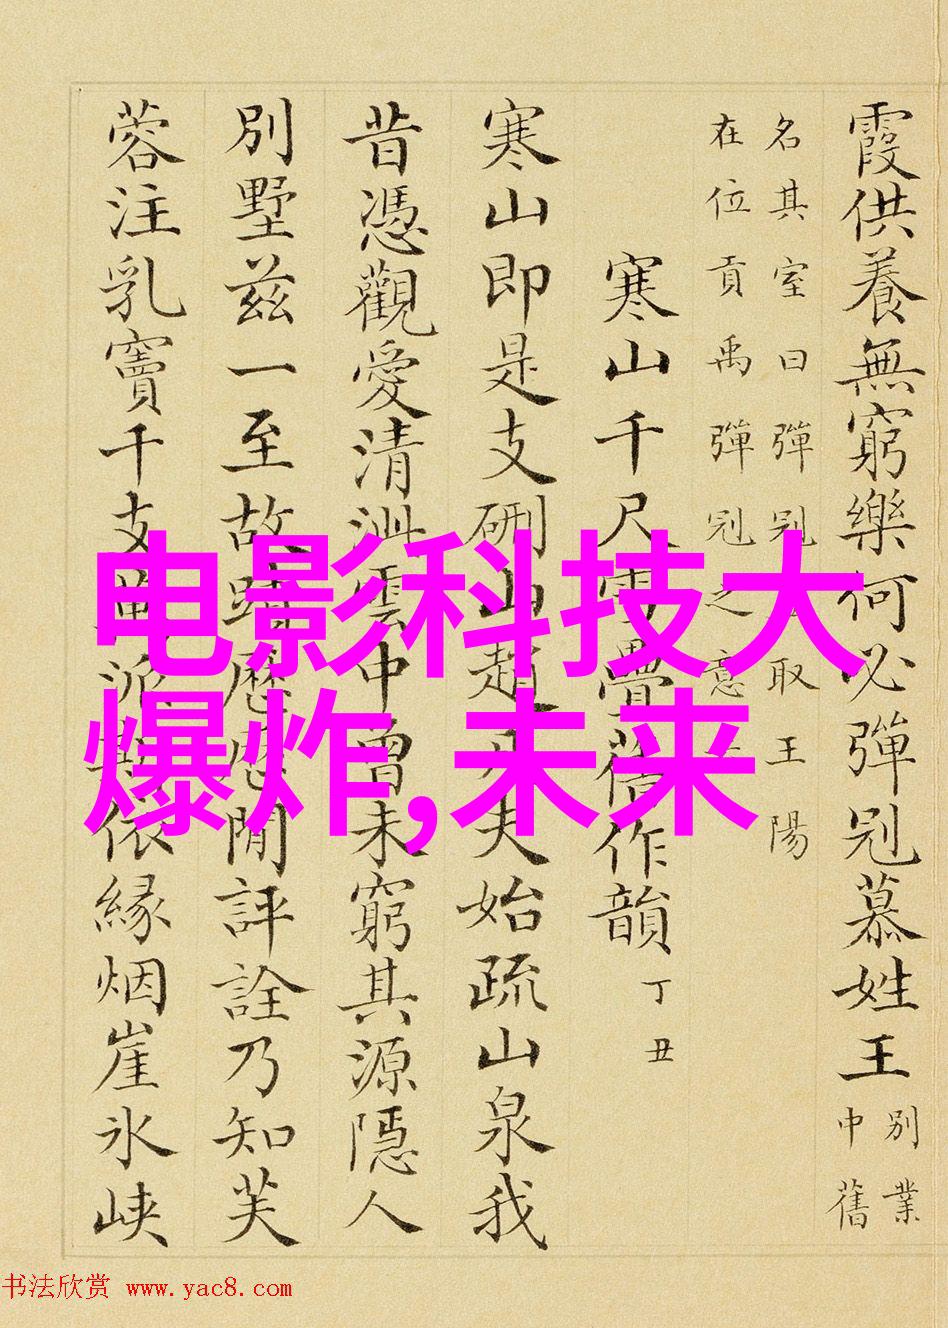 霞供養無窮樂何必彈冠慕姓王
別業
中舊
名其室曰彈冠取王陽
在位貢禹彈冠之意
寒山千尺雪疊舊作韻 丁丑
寒山即是支硎山趙凡夫始疏山泉我
昔憑觀愛清泚雲中曾未窮其源隱人
別墅茲一至故蹟歷歷閒評詮乃知芙
蓉注乳竇千支萬派依緣烟崖氷峽
电影科技大
爆炸,未来
书法欣赏 www.yac8.com